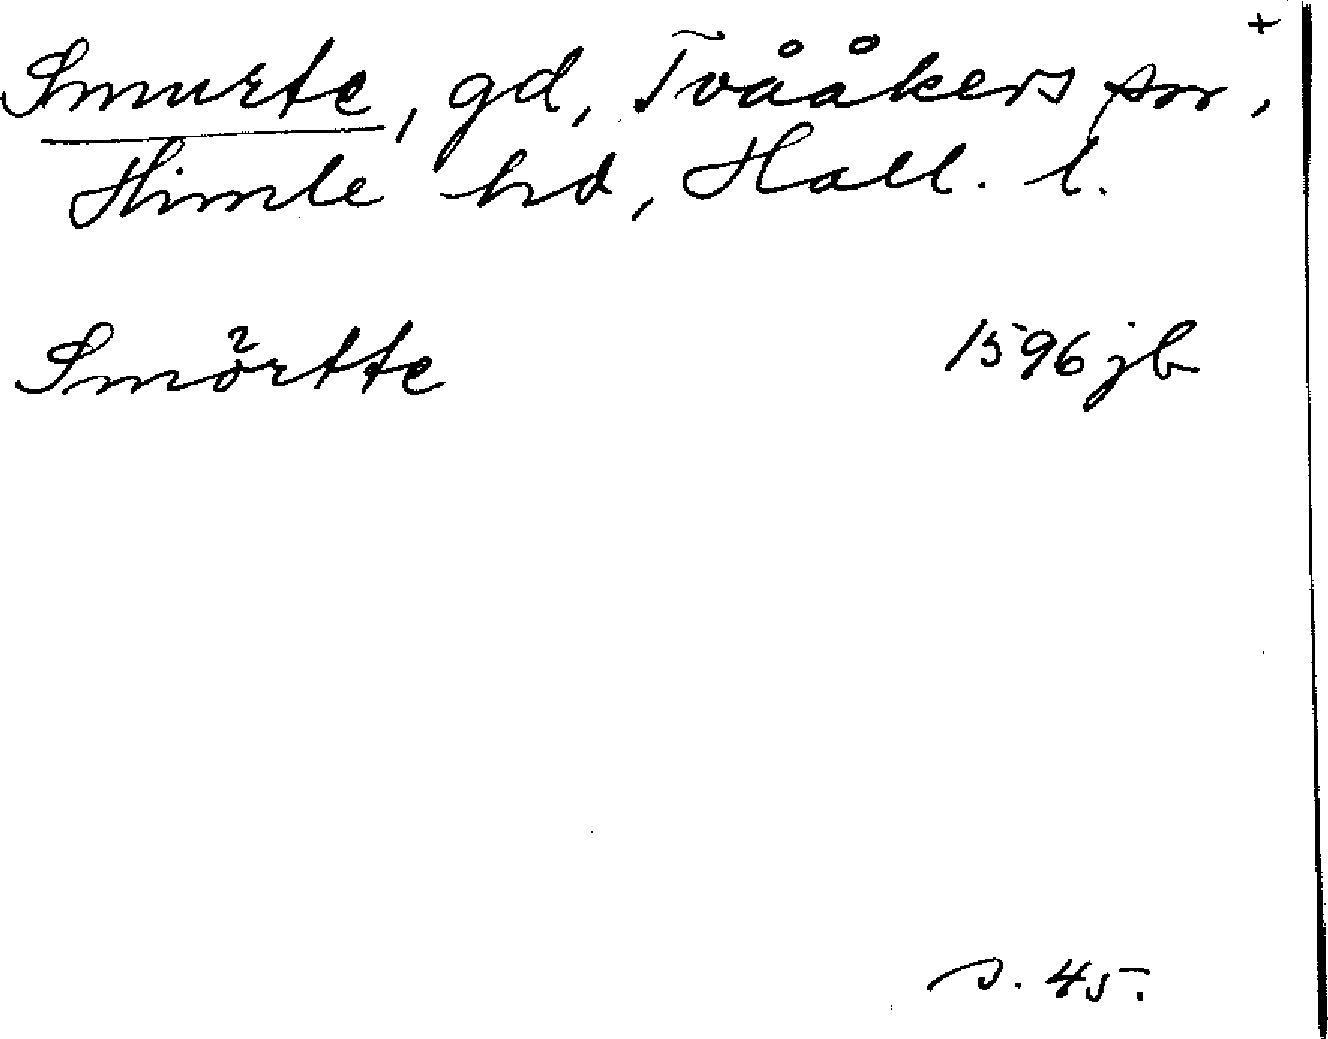 +
Smurte, gd, Tvååkers sn,
Himle hd, Hall. l.
Smörtte 1596 jb
s. 45.